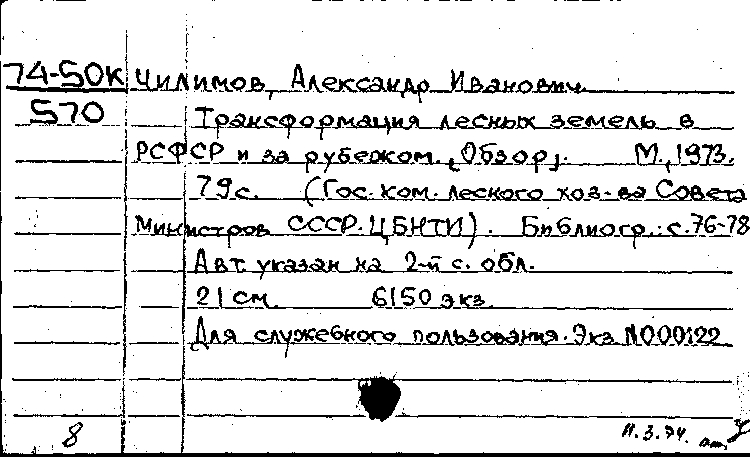 74-50к Чилимов, Александр Иванович.
570 Трансформация лесных земель в
РСФСР и за рубежом. [Обзор]. М., 1973.
79 с. (Гос. ком. лесного хоз-ва Совета
Министров СССР. ЦБНТИ). Библиогр.: с. 76-78
Авт. указан на 2-й с. обл.
21 см. 6150 экз.
Для служебного пользования. Экз. N000122
8 11.3.74.